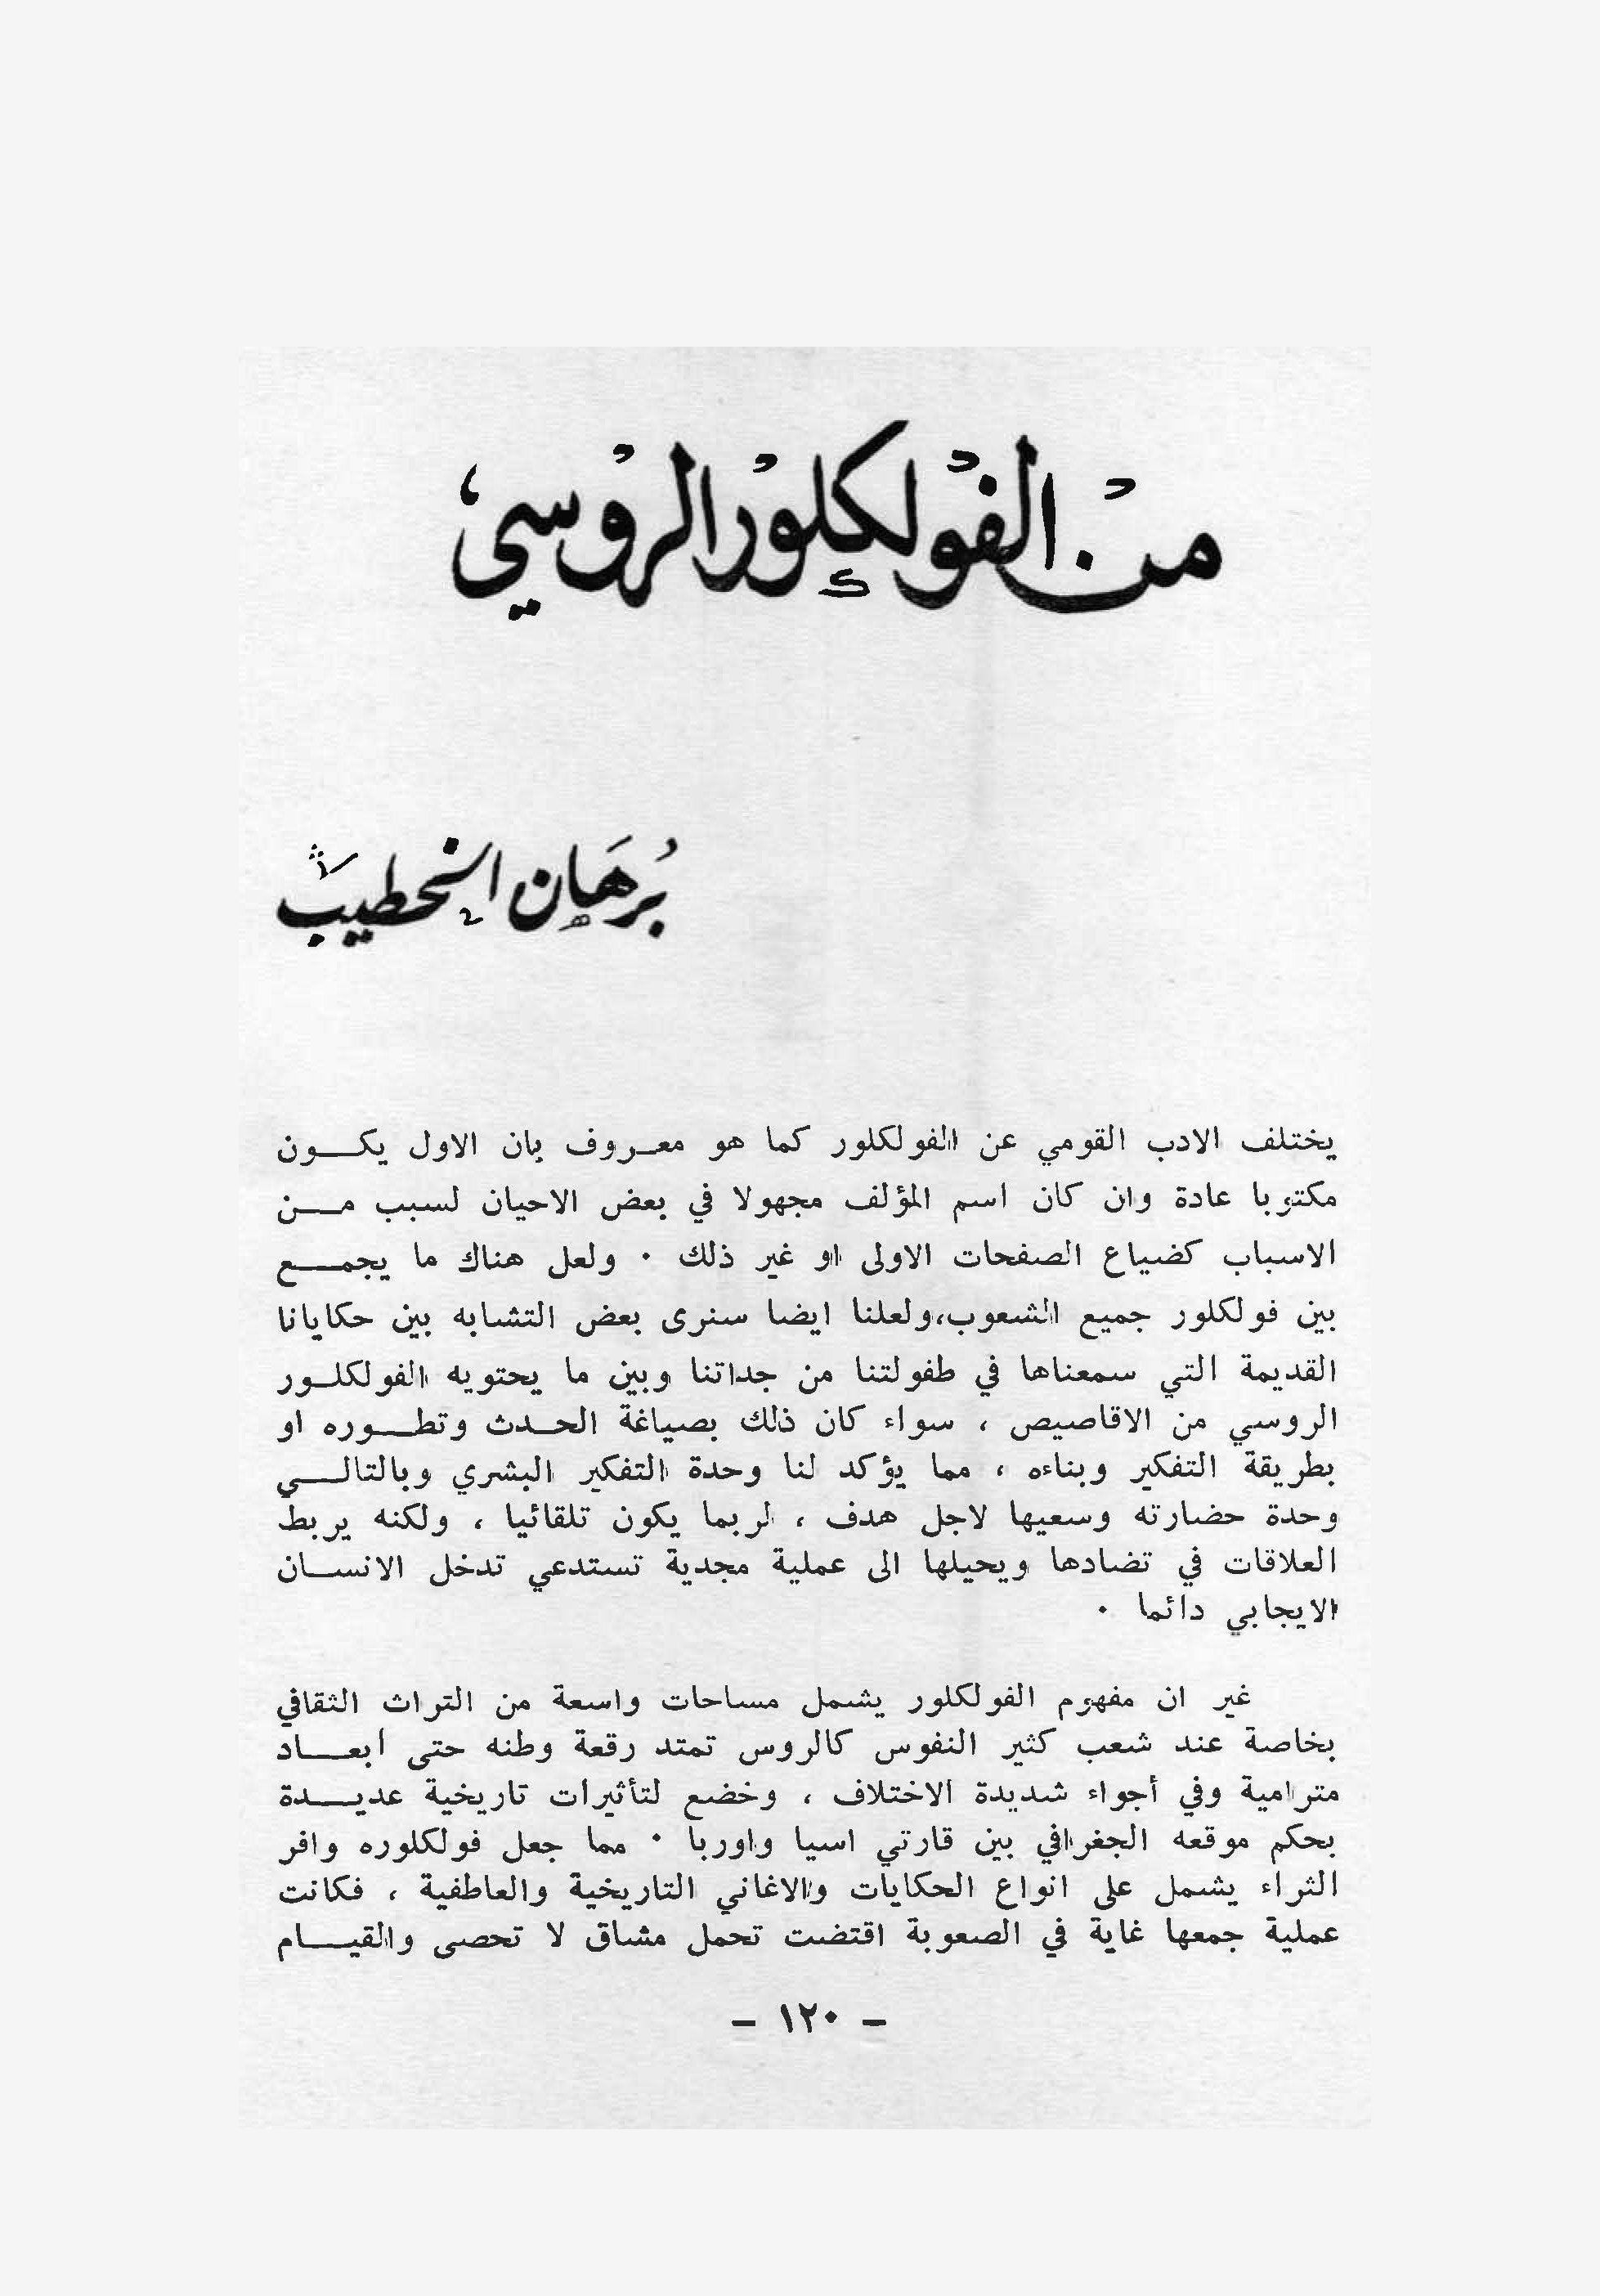 من الفولكلور الروسي
برهان الخطيب
يختلف الادب القومي عن الفولكلور كما هو معروف بان الاول يكون
مكتوبا عادة وان كان اسم المؤلف مجهولا في بعض الاحيان لسبب من
الاسباب كضياع الصفحات الاولى او غير ذلك ٠ ولعل هناك ما يجمع
بين فولكلور جميع الشعوب،ولعلنا ايضا سنرى بعض التشابه بين حكايانا
القديمة التي سمعناها في طفولتنا من جداتنا وبين ما يحتويه الفولكلور
الروسي من الاقاصيص ، سواء كان ذلك بصياغة الحدث وتطوره او
بطريقة التفكير وبناءه ، مما يؤكد لنا وحدة التفكير البشري وبالتالي
وحدة حضارته وسعيها لاجل هدف ، لربما يكون تلقائيا ، ولكنه يربط
العلاقات في تضادها ويحيلها الى عملية مجدية تستدعي تدخل الانسان
الايجابي دائما ٠
غير ان مفهوم الفولكلور يشمل مساحات واسعة من التراث الثقافي
بخاصة عند شعب كثير النفوس كالروس تمتد رقعة وطنه حتى أبعاد
مترامية وفي أجواء شديدة الاختلاف ، وخضع لتأثيرات تاريخية عديدة
بحكم موقعه الجغرافي بين قارتي اسيا واوربا ٠ مما جعل فولكلوره وافر
الثراء يشمل على انواع الحكايات والاغاني التاريخية والعاطفية ، فكانت
عملية جمعها غاية في الصعوبة اقتضت تحمل مشاق لا تحصى والقيام
– ١٢٠ –